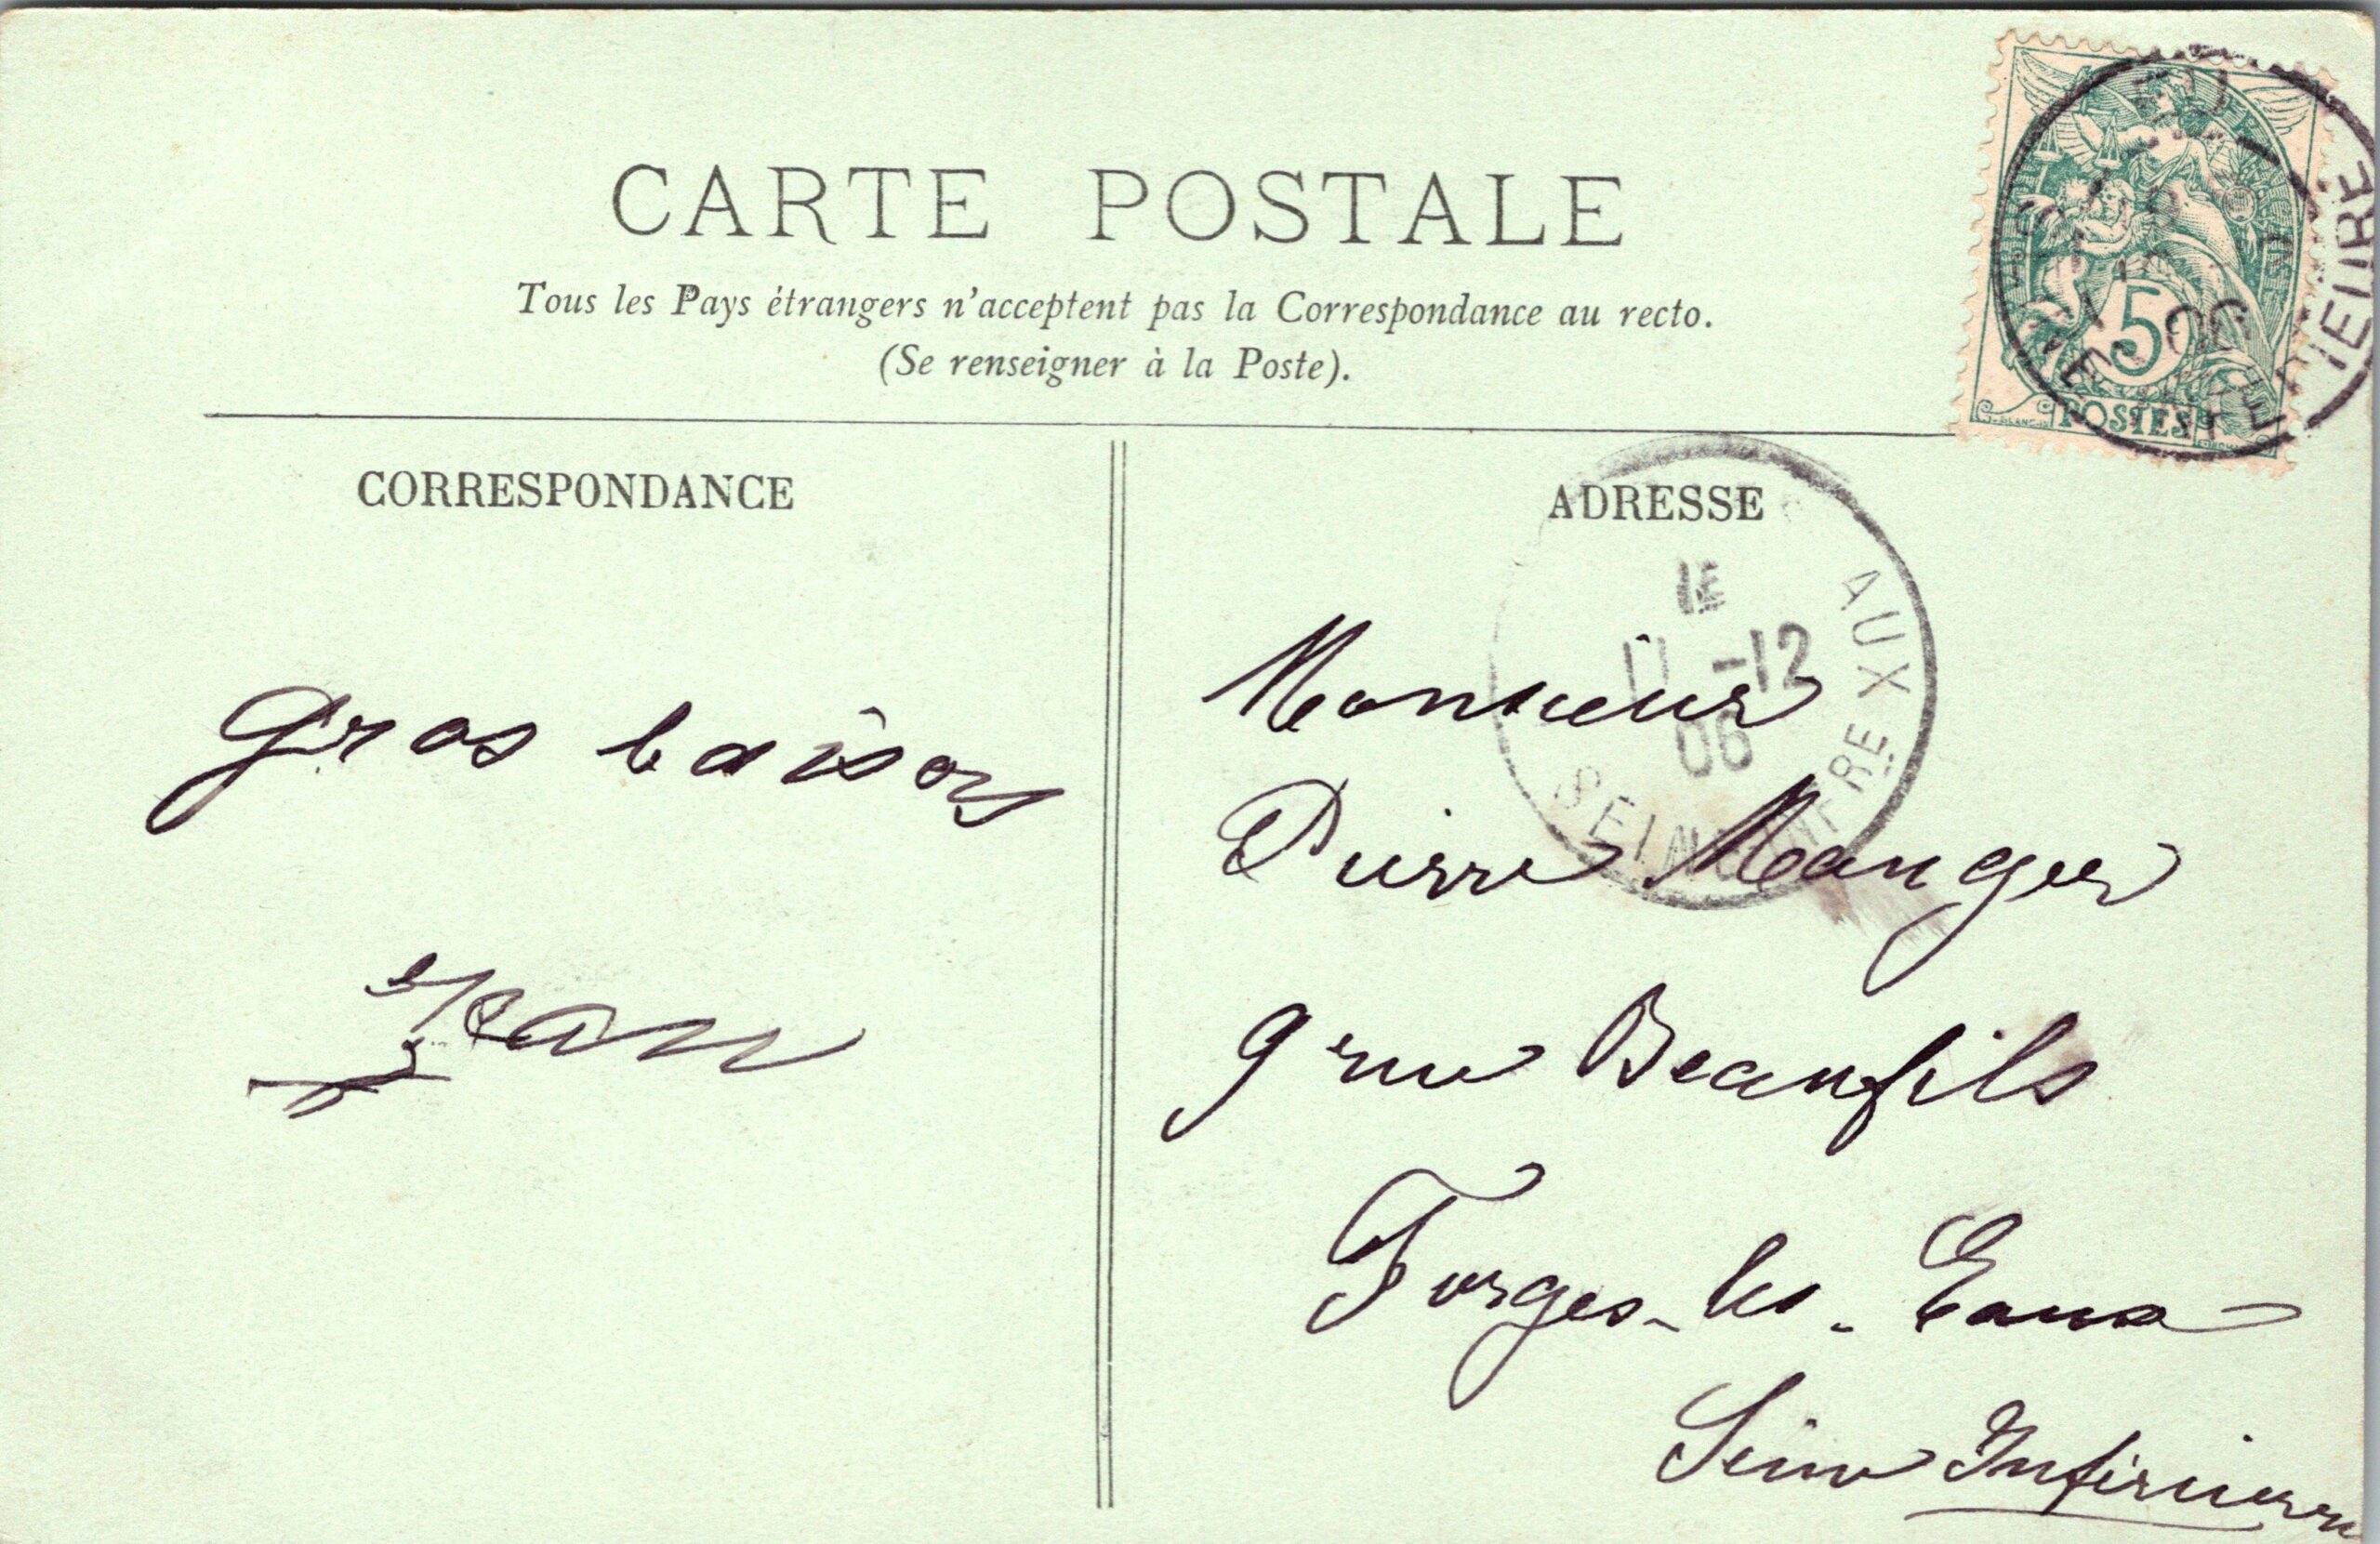 CARTE POSTALE
Tous les Pays étrangers n'acceptent pas la Correspondance au recto.
(Se renseigner à la Poste).
5
POSTES
CORRESPONDANCE
ADRESSE
AUX
1E
11-12
06
SEINE INFRE
Gros baisers
Jean
Monsieur
Pierre Manger
9 rue Beaufils
Forges-les-Eaux
Seine Inférieure